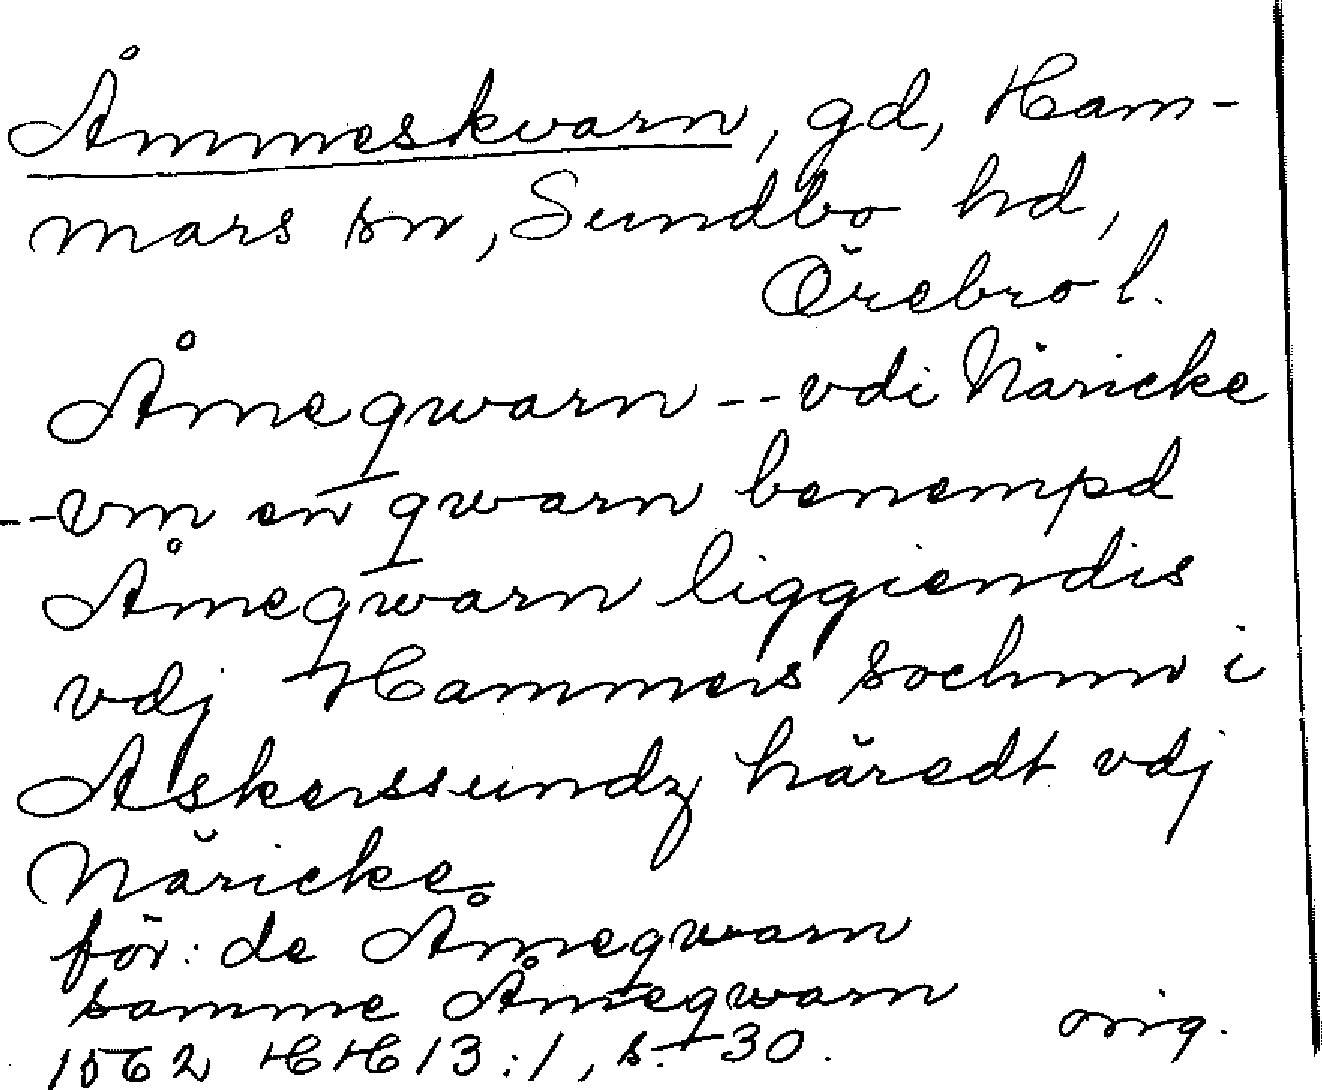 Åmmeskvarn, gd, Ham-
mars sn, Sundbo hd,
Örebro l.
Åmeqwarn -- vdi Näricke
-- vm en qwarn benempd
Åmeqwarn liggiendis
vdj Hammers sochnn i
Askerssundz häredt vdj
Näricke
för: de Åmeqwarn
samme Åmeqwarn
1562 HH 13:1, s. 30. orig.